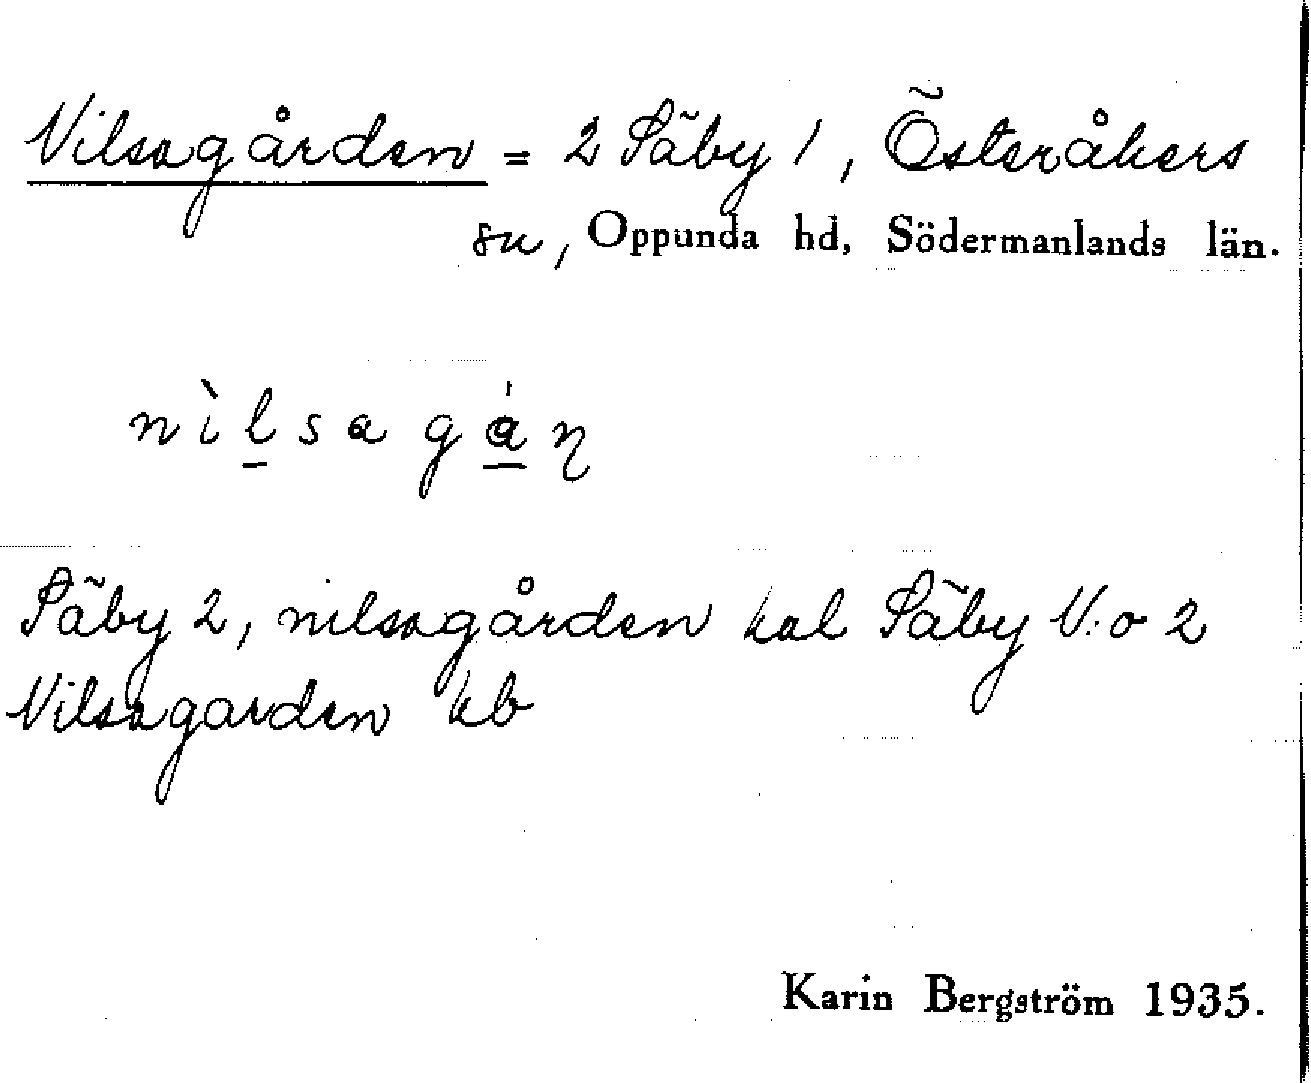 Nilsagården = 2 Säby 1, Österåkers
sn, Oppunda hd, Södermanlands län.
nìlsagán
Säby 2, nilsagården kal Säby N:o 2
Nilsagarden kb
Karin Bergström 1935.